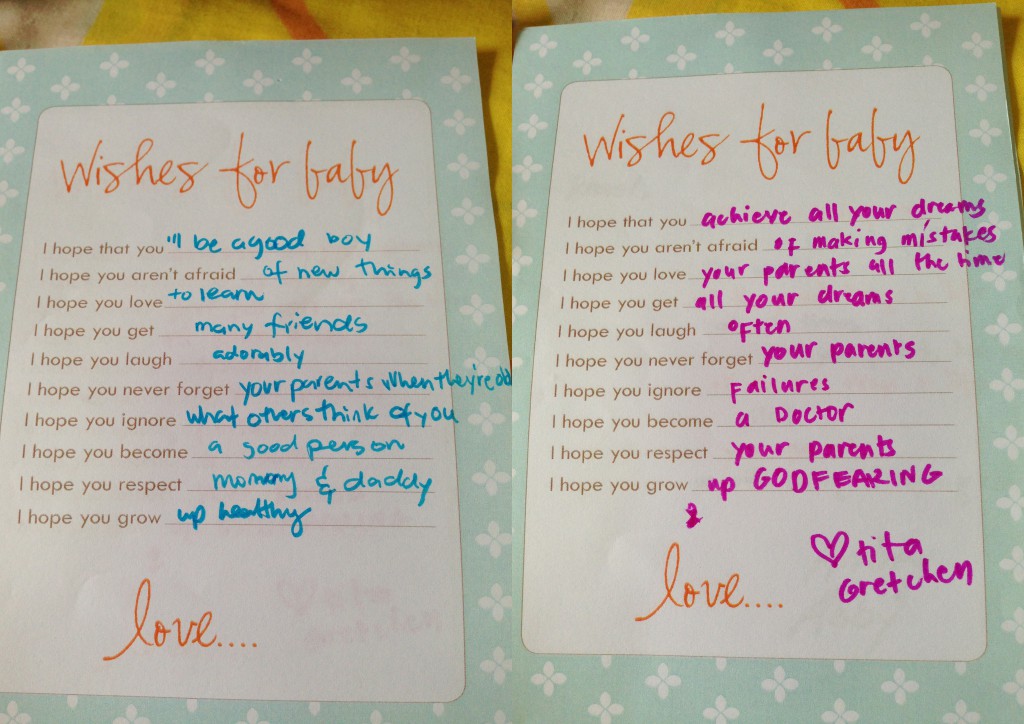 Wishes for baby
I hope that you 'll be a good boy
I hope you aren't afraid of new things
I hope you love to learn
I hope you get many friends
I hope you laugh adorably
I hope you never forget your parents when they're old
I hope you ignore what others think of you
I hope you become a good person
I hope you respect mommy & daddy
I hope you grow up healthy
love....
Wishes for baby
I hope that you achieve all your dreams
I hope you aren't afraid of making mistakes
I hope you love your parents all the time
I hope you get all your dreams
I hope you laugh often
I hope you never forget your parents
I hope you ignore Failures
I hope you become a DOCTOR
I hope you respect your parents
I hope you grow up GODFEARING
&
love....
♡ tita
Gretchen